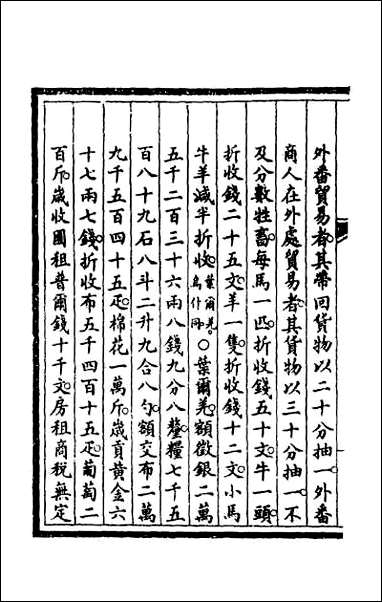 外番貿易者其帶回貨物以二十分抽一外番
商人在外處貿易者其貨物以三十分抽一不
及分數牲畜每馬一匹折收錢五十文牛一頭
折收錢二十五文羊一隻折收錢十二文小馬
牛羊減半折收葉爾羌烏什同○葉爾羌額徵銀二萬
五千二百三十六兩八錢九分八釐糧七千五
百八十九石八斗二升九合八勺額交布二萬
九千五百四十五疋棉花一萬斤歲貢黃金六
十七兩七錢折收布五千四百十五疋葡萄二
百斤歲收園租普爾錢十千文房租商稅無定